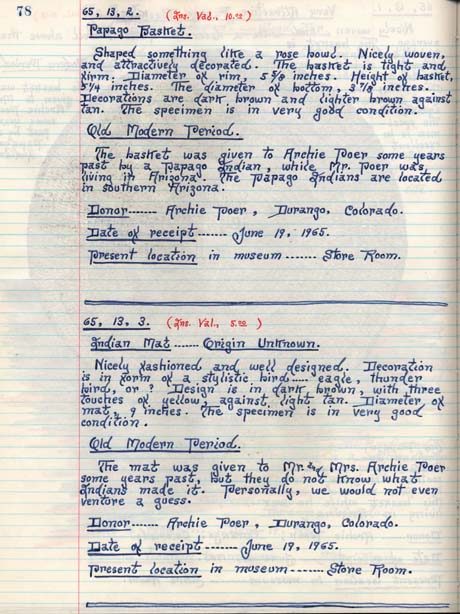 78
65, 13, 2. (Ins. Val., 10.00)
Papago Basket.
Shaped something like a rose bowl. Nicely woven,
and attractively decorated. The basket is tight and
firm. Diameter of rim, 5 5/8 inches. Height of basket,
5 1/4 inches. The diameter of bottom, 3 7/8 inches.
Decorations are dark brown and lighter brown against
tan. The specimen is in very good condition.
Old Modern Period.
The basket was given to Archie Poer some years
past by a Papago Indian, while Mr. Poer was
living in Arizona. The Papago Indians are located
in southern Arizona.
Donor------- Archie Poer, Durango, Colorado.
Date of receipt------- June 19, 1965.
Present location in museum ------- Store Room.
65, 13, 3. (Ins. Val., 5.00)
Indian Mat ------ Origin Unknown.
Nicely fashioned and well designed. Decoration
is in form of a stylistic bird----- eagle, thunder
bird, or ? Design is in dark brown, with three
touches of yellow, against light tan. Diameter of
mat, 9 inches. The specimen is in very good
condition.
Old Modern Period.
The mat was given to Mr. and Mrs. Archie Poer
some years past, but they do not know what
Indians made it. Personally, we would not even
venture a guess.
Donor------- Archie Poer, Durango, Colorado.
Date of receipt------- June 19, 1965.
Present location in museum ------- Store Room.